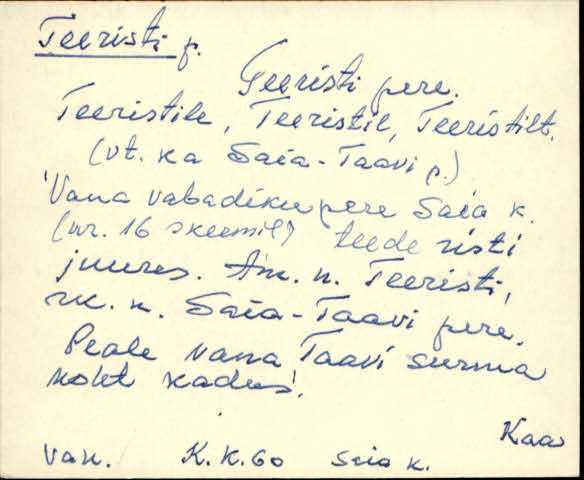 Teeristi p.
Teeristi pere.
Teeristile, Teeristil, Teeristilt.
(vt. ka Saia-Taavi p.)
Vana vabadiku pere Saia k.
(nr. 16 skeemil) teede risti
juures. Am. n. Teeristi,
rk. n. Saia-Taavi pere.
Peale vana Taavi surma
koht kadus.
Kaa
Van. K.K.60 Saia k.